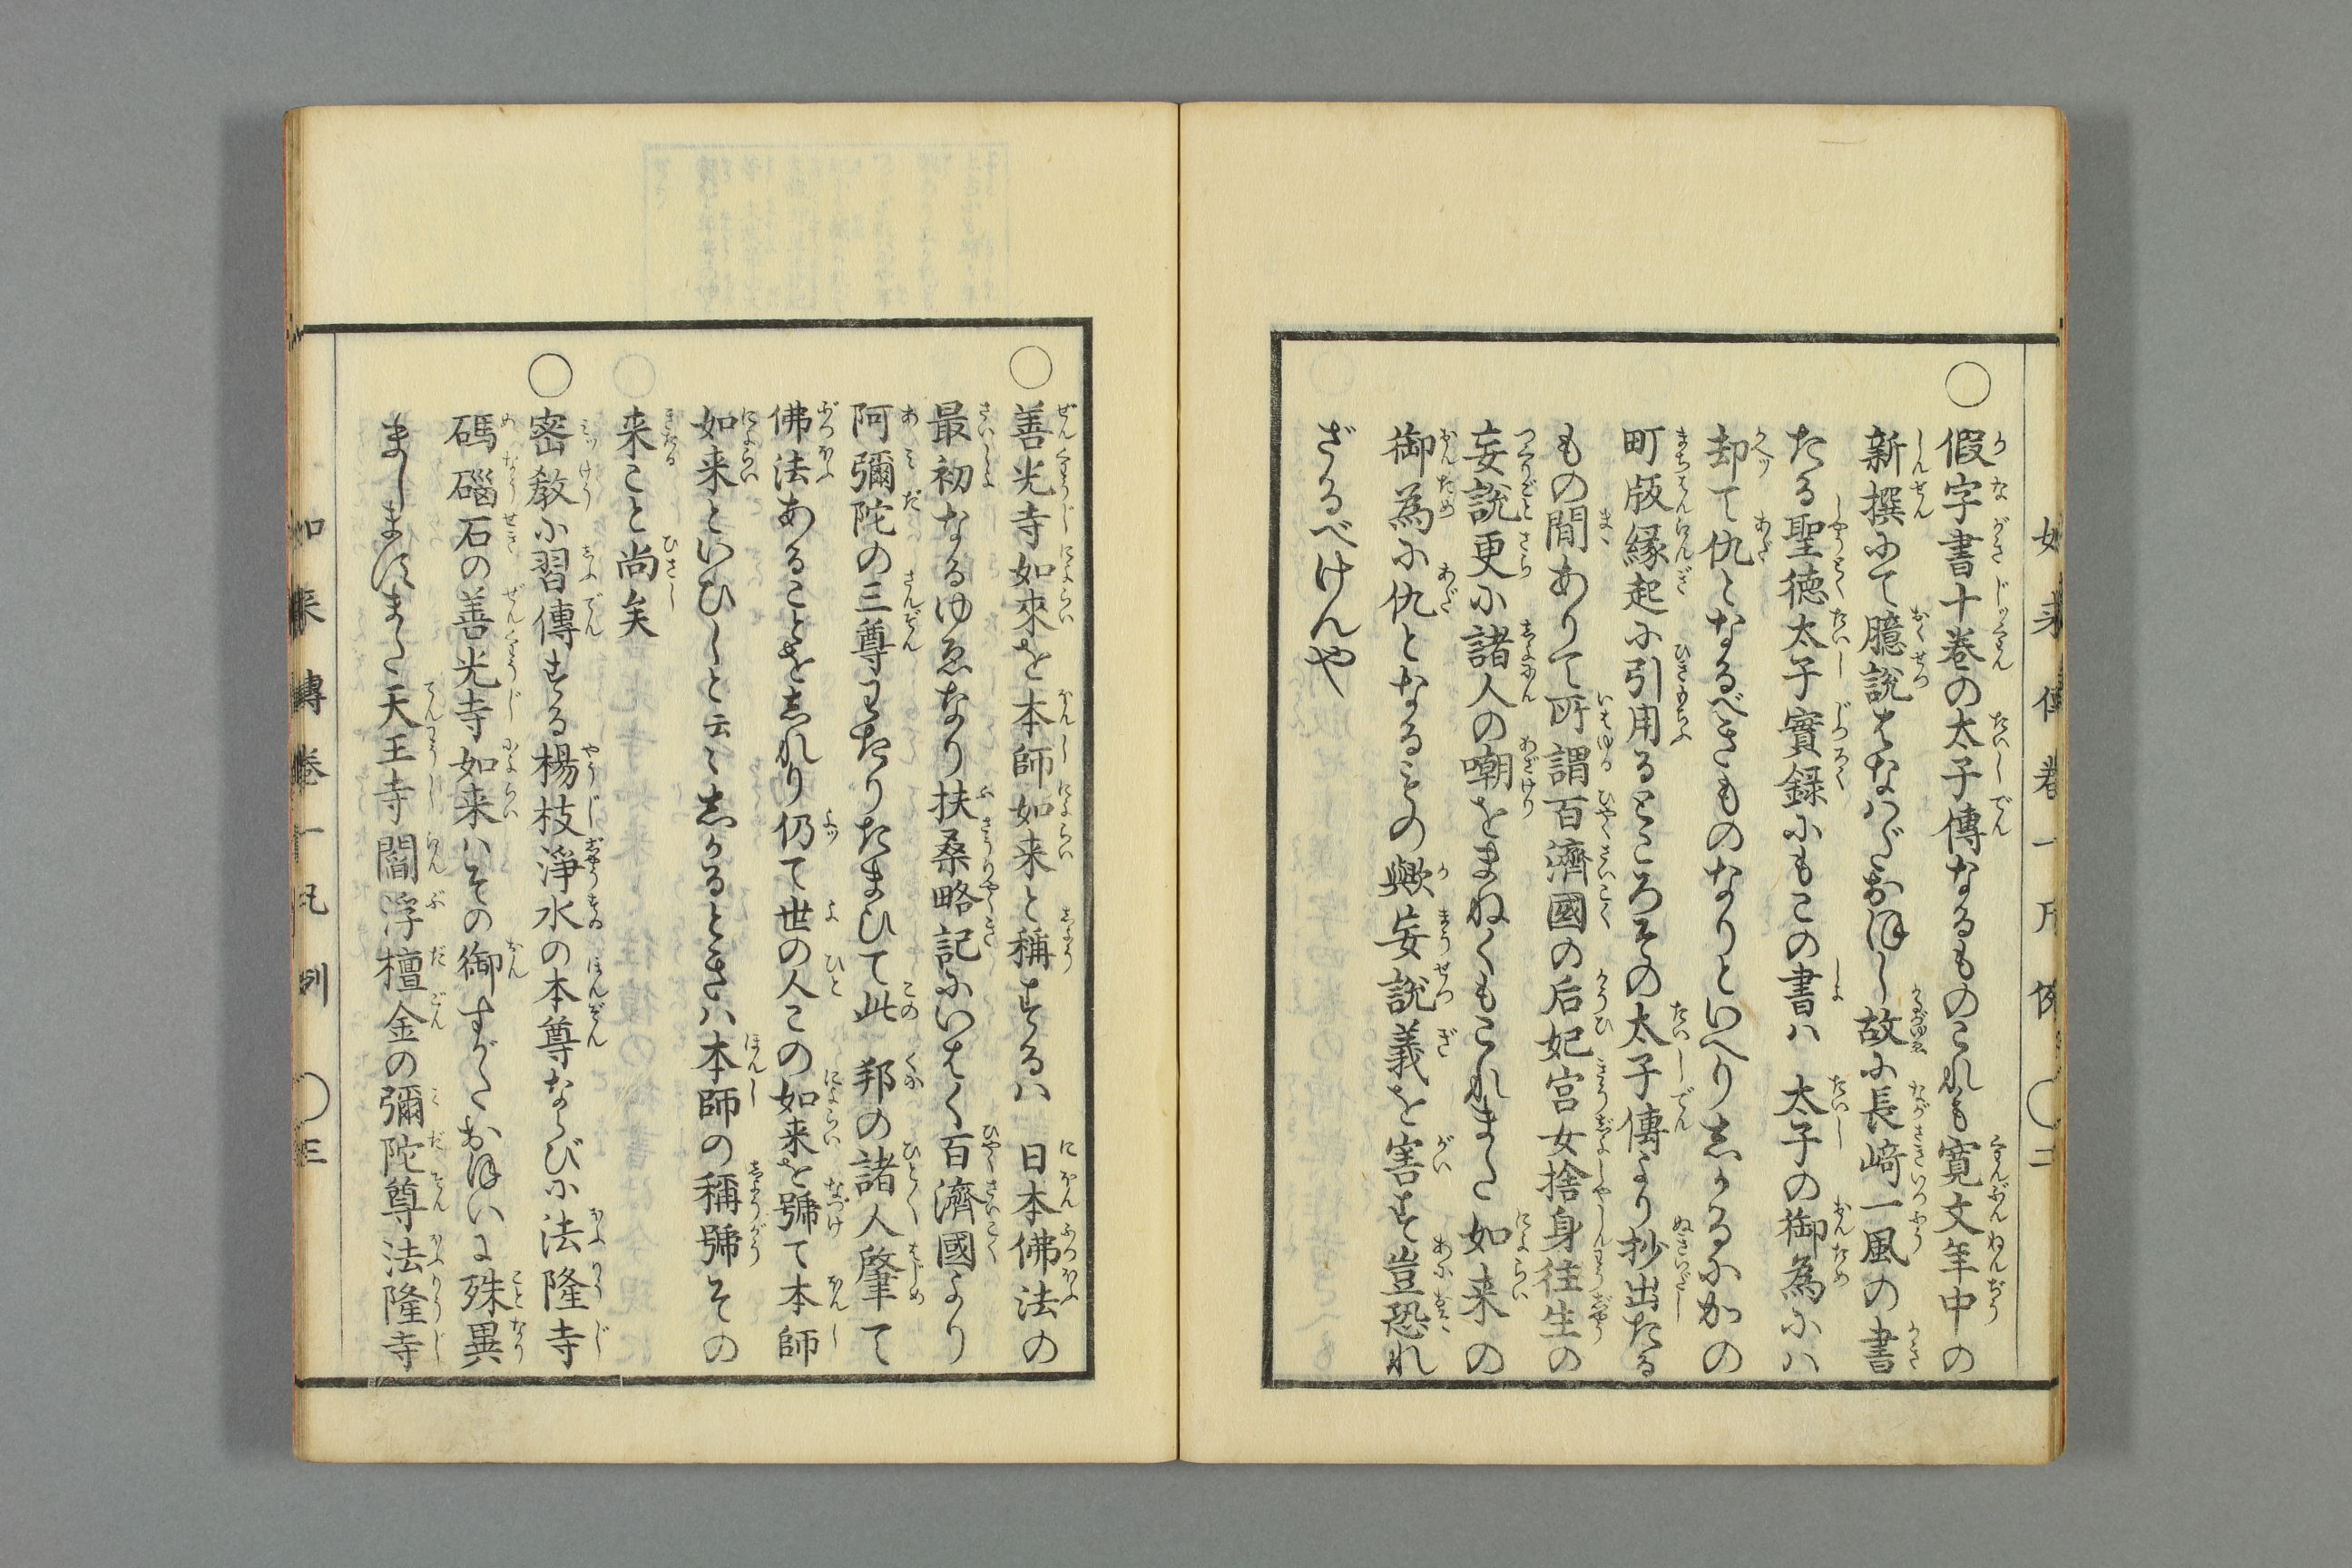 如来傳巻一凡例 〇二
〇假字書十巻の太子傳なるものこれも寛文年中の
新撰にて臆説すくなからざれば故に長﨑一風の書
たる聖徳太子實録にもこの書ハ 太子の御為にハ
却て仇となるべきものなりといへり志かるにかの
町版縁起に引用るところその太子傳より抄出たる
もの間ありて所謂百濟國の后妃宮女捨身往生の
妄説更に諸人の嘲をまねくもこれまた 如来の
御為に仇となるその歟妄説義を害す豈恐れ
ざるべけんや
〇善光寺如來を本師如来と稱するハ 日本佛法の
最初なるゆゑなり扶桑略記にいはく百濟國より
阿彌陀の三尊わたりたまひて此 邦の諸人肇て
佛法あることを志れり仍て世の人この如来を號て本師
如来といひしと云々志かるときハ本師の稱號その
来こと尚矣
〇密教に習傳する楊枝淨水の本尊ならびに法隆寺
碼碯石の善光寺如来ハその御すがたおほいに殊異
ましますまた天王寺閻浮檀金の彌陀尊法隆寺
如来傳巻一凡例 〇三